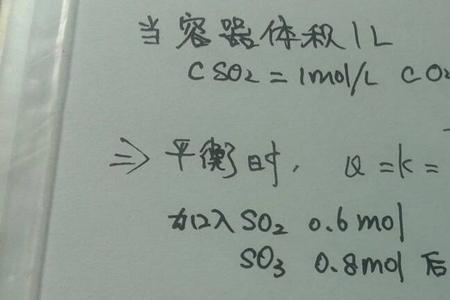 当容器体积1L
CSO2=1mol/L CO2
⇒ 平衡时, Q=k=
加入SO2 0.6mol
SO3 0.8mol 后